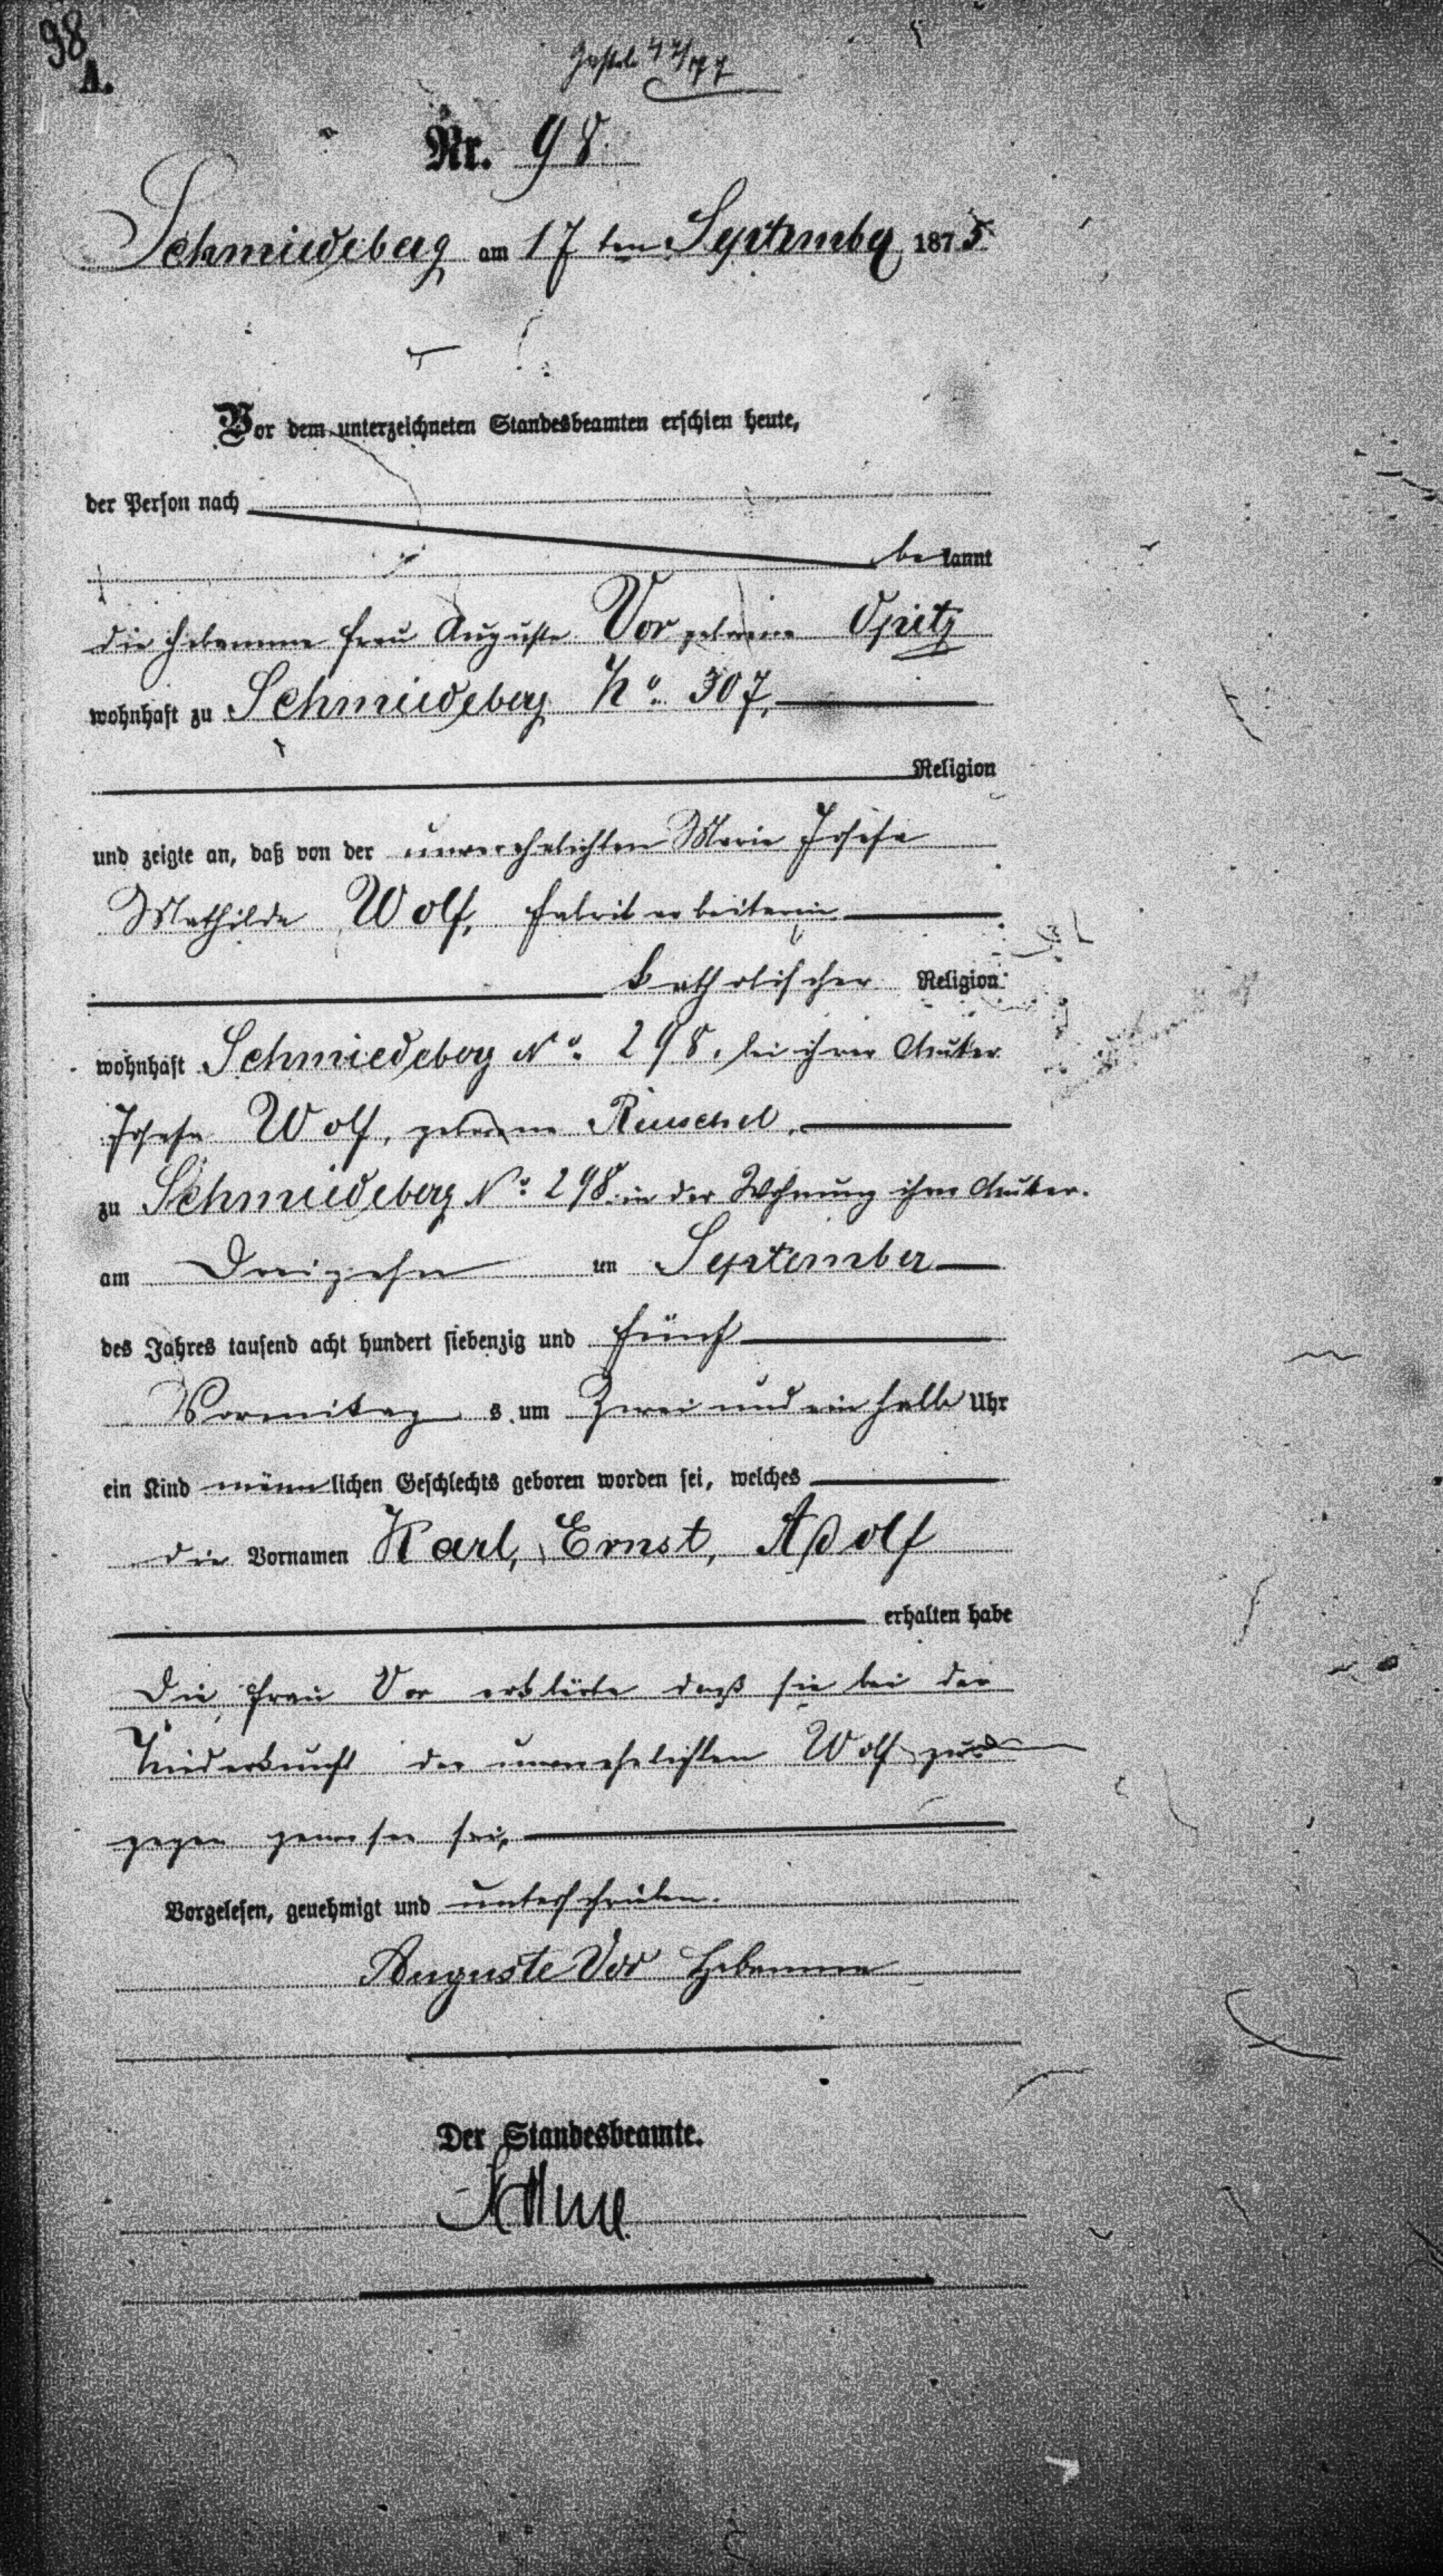 98
A.
Nr. 98.
Schmiedeberg am 17 ten September 1875.
Vor dem unterzeichneten Standesbeamten erschien heute,
der Person nach
bekannt
die Hebamme Frau Auguste Vor geborene Opitz
wohnhaft zu Schmiedeberg No. 307,
Religion
und zeigte an, daß von der unverehelichten Marie Josefa
Mathilde Wolf, Fabrikarbeiterin
katholischer Religion
wohnhaft Schmiedeberg No. 298, bei ihrer Mutter
Josefa Wolf, geborene Reuschel,
zu Schmiedeberg No. 298 in der Wohnung ihrer Mutter.
am Dreizehn ten September
des Jahres tausend acht hundert siebenzig und fünf
Vormittag s um Zwei und ein halb Uhr
ein Kind männlichen Geschlechts geboren worden sei, welches
die Vornamen Karl, Ernst, Adolf
erhalten habe
Die Frau Vor erklärte daß sie bei der
Niederkunft der unverehelichten Wolf zu
gegen gewesen sei,
Vorgelesen, genehmigt und unterschrieben.
Auguste Vor Hebamme
Der Standesbeamte.